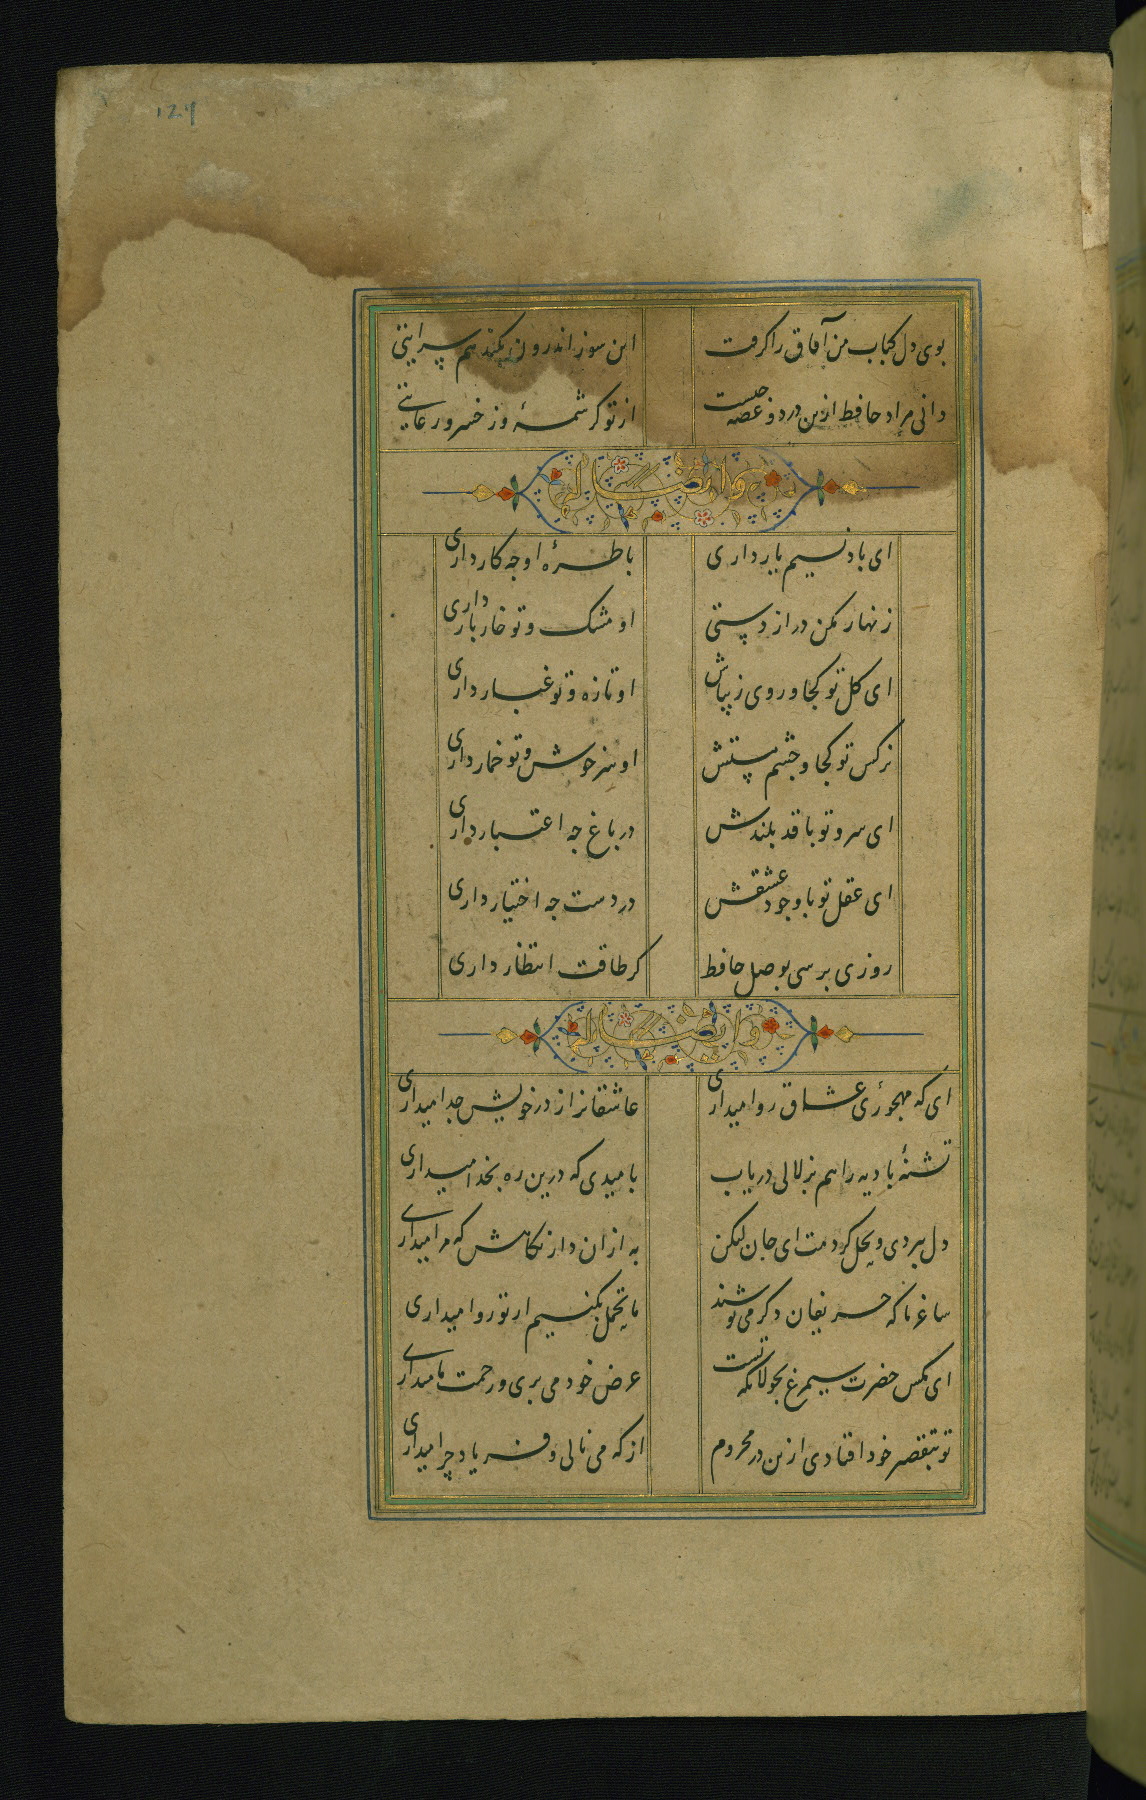 بوی دل کباب من آفاق را گرفت
این سوز اندرون بکند هم سرایتی
دانی مراد حافظ ازین درد و غصه چیست
از تو کرشمهٔ وز خسرو رعایتی
وایضا له
ای باد نسیم یار داری
با طرهٔ او چه کار داری
زنهار مکن دراز دستی
او مشک و تو خار بار داری
ای کل تو کجا و روی زیباش
او تازه و تو غبار داری
نرکس تو کجا و چشم مستش
او سرخوش و تو خمار داری
ای سرو تو با قد بلندش
در باغ چه اعتبار داری
ای عقل تو با وجود عشقش
در دست چه اختیار داری
روزی برسی بوصل حافظ
کر طاقت انتظار داری
وایضا له
ای که مهجوری عشاق روا میداری
عاشقانرا ز در خویش جدا میداری
تشنهٔ بادیه را هم بزلالی دریاب
بامیدی که درین ره بخدا میداری
دل ببردی و بحل کردمت ای جان لیکن
به ازان دار نکاهش که مرا میداری
ساغر ما که حریفان دکر می نوشند
ما تحمل بکنیم ار تو روا میداری
ای مکس حضرت سیمرغ نه جولانکه تست
عرض خود می بری و زحمت ما میداری
تو بتقصیر خود افتادی ازین در محروم
از که می نالی و فریاد چرا میداری